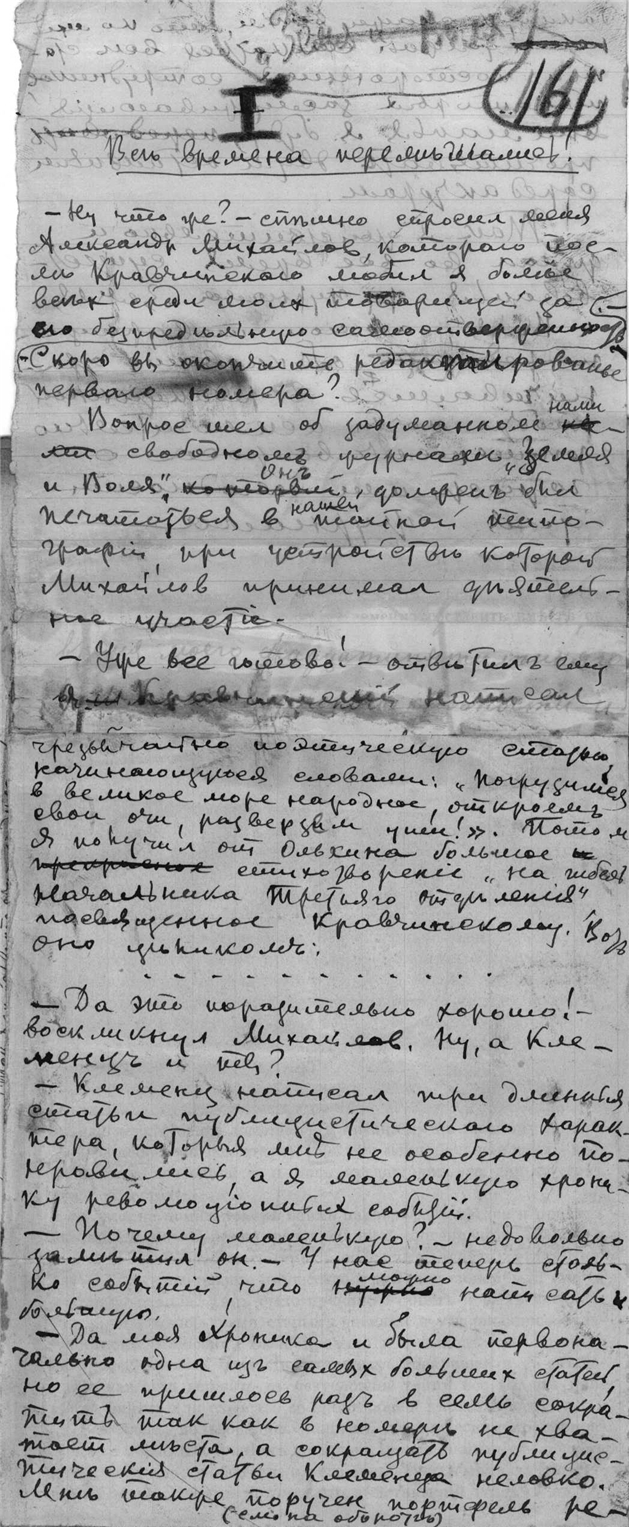 161
I
Всѣ времена перемѣшались!
— Ну что же? — спѣшно спросил меня
Александр Михайлов, котораго пос-
лѣ Кравчинского любил я болѣе
всѣх среди моих товарищей за
его безпредѣльную самоотверженность
— Скоро вы окончите редактированье
перваго номера?
Вопрос шел об задуманном нами
свободномъ журналѣ „Земля
и Воля“, онъ должен был
печататься в нашей тайной типо-
графіи, при устройствѣ которой
Михайлов принимал дѣятель-
ное участіе.
— Уже все готово! — отвѣтилъ ему
я. Кравчинский написал
чрезвычайно поэтическую статью,
начинающуюся словами: „погрузимся
в великое море народное, откроемъ
свои очи, разверзем уши!». Потом
я получил от Ольхина большое
прекрасное стихотворение „на гибель
Начальника Третьяго отдѣленія“
посвященное Кравчинскому. Вот
оно цѣликомъ:
. . . . . . . . . . . . .
— Да это поразительно хорошо! —
воскликнул Михайлов. Ну, а Кле-
менцъ и ты?
— Клеменц написал три длинныя
статьи публицистическаго харак-
тера, которыя мнѣ не особенно по-
нравились, а я маленькую хрони-
ку революціонных событій.
— Почему маленькую? — недовольно
замѣтил он. — У нас теперь столь-
ко событий, что нужно можно написать и
большую.
— Да моя хроника и была первона-
чально одна из самых больших статей,
но ее пришлось разъ в семь сокра-
тить так как в номерѣ не хва-
тает мѣста, а сокращать публицис-
тическія статьи Клеменца неловко.
Мнѣ также поручен портфель ре-
(см. на оборотѣ)